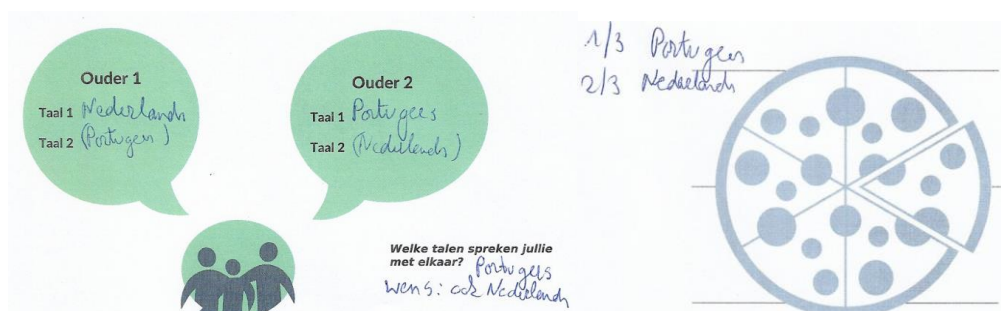 Ouder 1
Taal 1 Nederlands
Taal 2 (Portugees)
Ouder 2
Taal 1 Portugees
Taal 2 (Nederlands)
Welke talen spreken jullie
met elkaar? Portugees
wens: ook Nederlands
1/3 Portugees
2/3 Nederlands